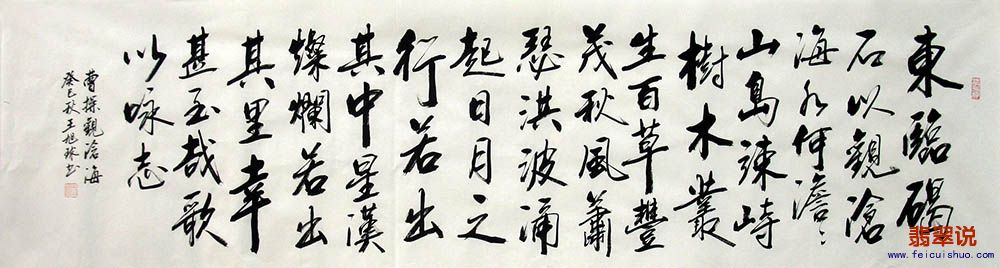 東臨碣
石以觀滄
海水何澹〻
山島竦峙
樹木叢
生百草豐
茂秋風蕭
瑟洪波涌
起日月之
行若出
其中星漢
燦爛若出
其里幸
甚至哉歌
以咏志
曹操觀滄海
癸巳秋王旭书
翡翠说
www.feicuishuo.com